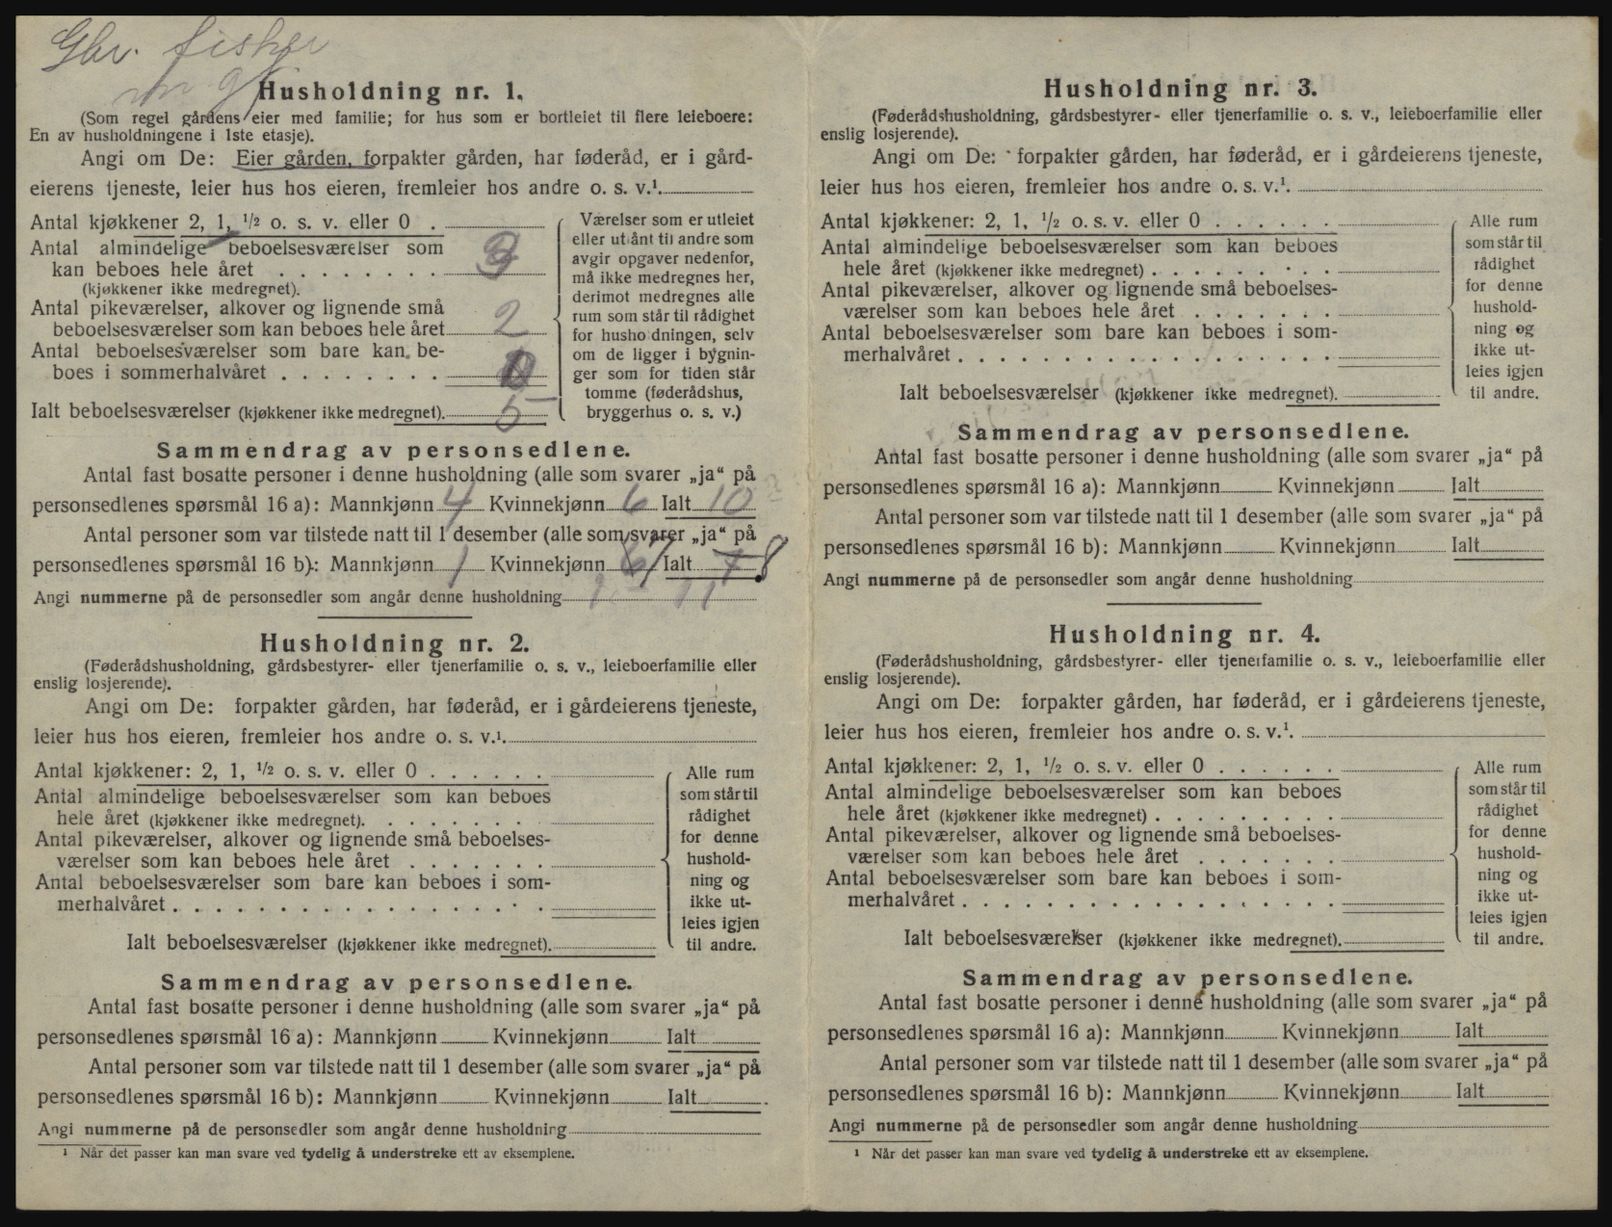 Gbr. fisker
Husholdning nr. 1.
(Som regel gårdens eier med familie; for hus som er bortleiet til flere leieboere:
En av husholdningene i 1ste etasje).
Angi om De: Eier gården, forpakter gården, har føderåd, er i gård-
eierens tjeneste, leier hus hos eieren, fremleier hos andre o. s. v.¹.
Antal kjøkkener 2, 1, ½ o. s. v. eller 0 .
Antal almindelige beboelsesværelser som
kan beboes hele året . . . . . . . . 3
(kjøkkener ikke medregnet).
Antal pikeværelser, alkover og lignende små
beboelsesværelser som kan beboes hele året 2
Antal beboelsesværelser som bare kan be-
boes i sommerhalvåret . . . . . . . .
Ialt beboelsesværelser (kjøkkener ikke medregnet). 5
Værelser som er utleiet
eller utlånt til andre som
avgir opgaver nedenfor,
må ikke medregnes her,
derimot medregnes alle
rum som står til rådighet
for husholdningen, selv
om de ligger i bygnin-
ger som for tiden står
tomme (føderådshus,
bryggerhus o. s. v.)
Sammendrag av personsedlene.
Antal fast bosatte personer i denne husholdning (alle som svarer „ja“ på
personsedlenes spørsmål 16 a): Mannkjønn 4 Kvinnekjønn 6 Ialt 10
Antal personer som var tilstede natt til 1 desember (alle som svarer „ja“ på
personsedlenes spørsmål 16 b): Mannkjønn 1 Kvinnekjønn 6 7 Ialt 7 8
Angi nummerne på de personsedler som angår denne husholdning 1 - 11
Husholdning nr. 2.
(Føderådshusholdning, gårdsbestyrer- eller tjenerfamilie o. s. v., leieboerfamilie eller
enslig losjerende).
Angi om De: forpakter gården, har føderåd, er i gårdeierens tjeneste,
leier hus hos eieren, fremleier hos andre o. s. v.¹.
Antal kjøkkener: 2, 1, ½ o. s. v. eller 0 . . . . . .
Antal almindelige beboelsesværelser som kan beboes
hele året (kjøkkener ikke medregnet). . . . . . . .
Antal pikeværelser, alkover og lignende små beboelses-
værelser som kan beboes hele året . . . . . . .
Antal beboelsesværelser som bare kan beboes i som-
merhalvåret . . . . . . . . . . . . . . . . . .
Ialt beboelsesværelser (kjøkkener ikke medregnet).
Alle rum
som står til
rådighet
for denne
hushold-
ning og
ikke ut-
leies igjen
til andre.
Sammendrag av personsedlene.
Antal fast bosatte personer i denne husholdning (alle som svarer „ja“ på
personsedlenes spørsmål 16 a): Mannkjønn Kvinnekjønn Ialt
Antal personer som var tilstede natt til 1 desember (alle som svarer „ja“ på
personsedlenes spørsmål 16 b): Mannkjønn Kvinnekjønn Ialt
Angi nummerne på de personsedler som angår denne husholdning
¹ Når det passer kan man svare ved tydelig å understreke ett av eksemplene.
Husholdning nr. 3.
(Føderådshusholdning, gårdsbestyrer- eller tjenerfamilie o. s. v., leieboerfamilie eller
enslig losjerende).
Angi om De: forpakter gården, har føderåd, er i gårdeierens tjeneste,
leier hus hos eieren, fremleier hos andre o. s. v.¹.
Antal kjøkkener: 2, 1, ½ o. s. v. eller 0 . . . . . .
Antal almindelige beboelsesværelser som kan beboes
hele året (kjøkkener ikke medregnet) . . . . . . . . .
Antal pikeværelser, alkover og lignende små beboelses-
værelser som kan beboes hele året . . . . . . .
Antal beboelsesværelser som bare kan beboes i som-
merhalvåret . . . . . . . . . . . . . . . . . .
Ialt beboelsesværelser (kjøkkener ikke medregnet).
Alle rum
som står til
rådighet
for denne
hushold-
ning og
ikke ut-
leies igjen
til andre.
Sammendrag av personsedlene.
Antal fast bosatte personer i denne husholdning (alle som svarer „ja“ på
personsedlenes spørsmål 16 a): Mannkjønn Kvinnekjønn Ialt
Antal personer som var tilstede natt til 1 desember (alle som svarer „ja“ på
personsedlenes spørsmål 16 b): Mannkjønn Kvinnekjønn Ialt
Angi nummerne på de personsedler som angår denne husholdning
Husholdning nr. 4.
(Føderådshusholdning, gårdsbestyrer- eller tjenerfamilie o. s. v., leieboerfamilie eller
enslig losjerende).
Angi om De: forpakter gården, har føderåd, er i gårdeierens tjeneste,
leier hus hos eieren, fremleier hos andre o. s. v.¹.
Antal kjøkkener: 2, 1, ½ o. s. v. eller 0 . . . . . .
Antal almindelige beboelsesværelser som kan beboes
hele året (kjøkkener ikke medregnet) . . . . . . . . .
Antal pikeværelser, alkover og lignende små beboelses-
værelser som kan beboes hele året . . . . . . .
Antal beboelsesværelser som bare kan beboes i som-
merhalvåret . . . . . . . . . . . . . . . . . .
Ialt beboelsesværelser (kjøkkener ikke medregnet).
Alle rum
som står til
rådighet
for denne
hushold-
ning og
ikke ut-
leies igjen
til andre.
Sammendrag av personsedlene.
Antal fast bosatte personer i denne husholdning (alle som svarer „ja“ på
personsedlenes spørsmål 16 a): Mannkjønn Kvinnekjønn Ialt
Antal personer som var tilstede natt til 1 desember (alle som svarer „ja“ på
personsedlenes spørsmål 16 b): Mannkjønn Kvinnekjønn Ialt
Angi nummerne på de personsedler som angår denne husholdning
¹ Når det passer kan man svare ved tydelig å understreke ett av eksemplene.